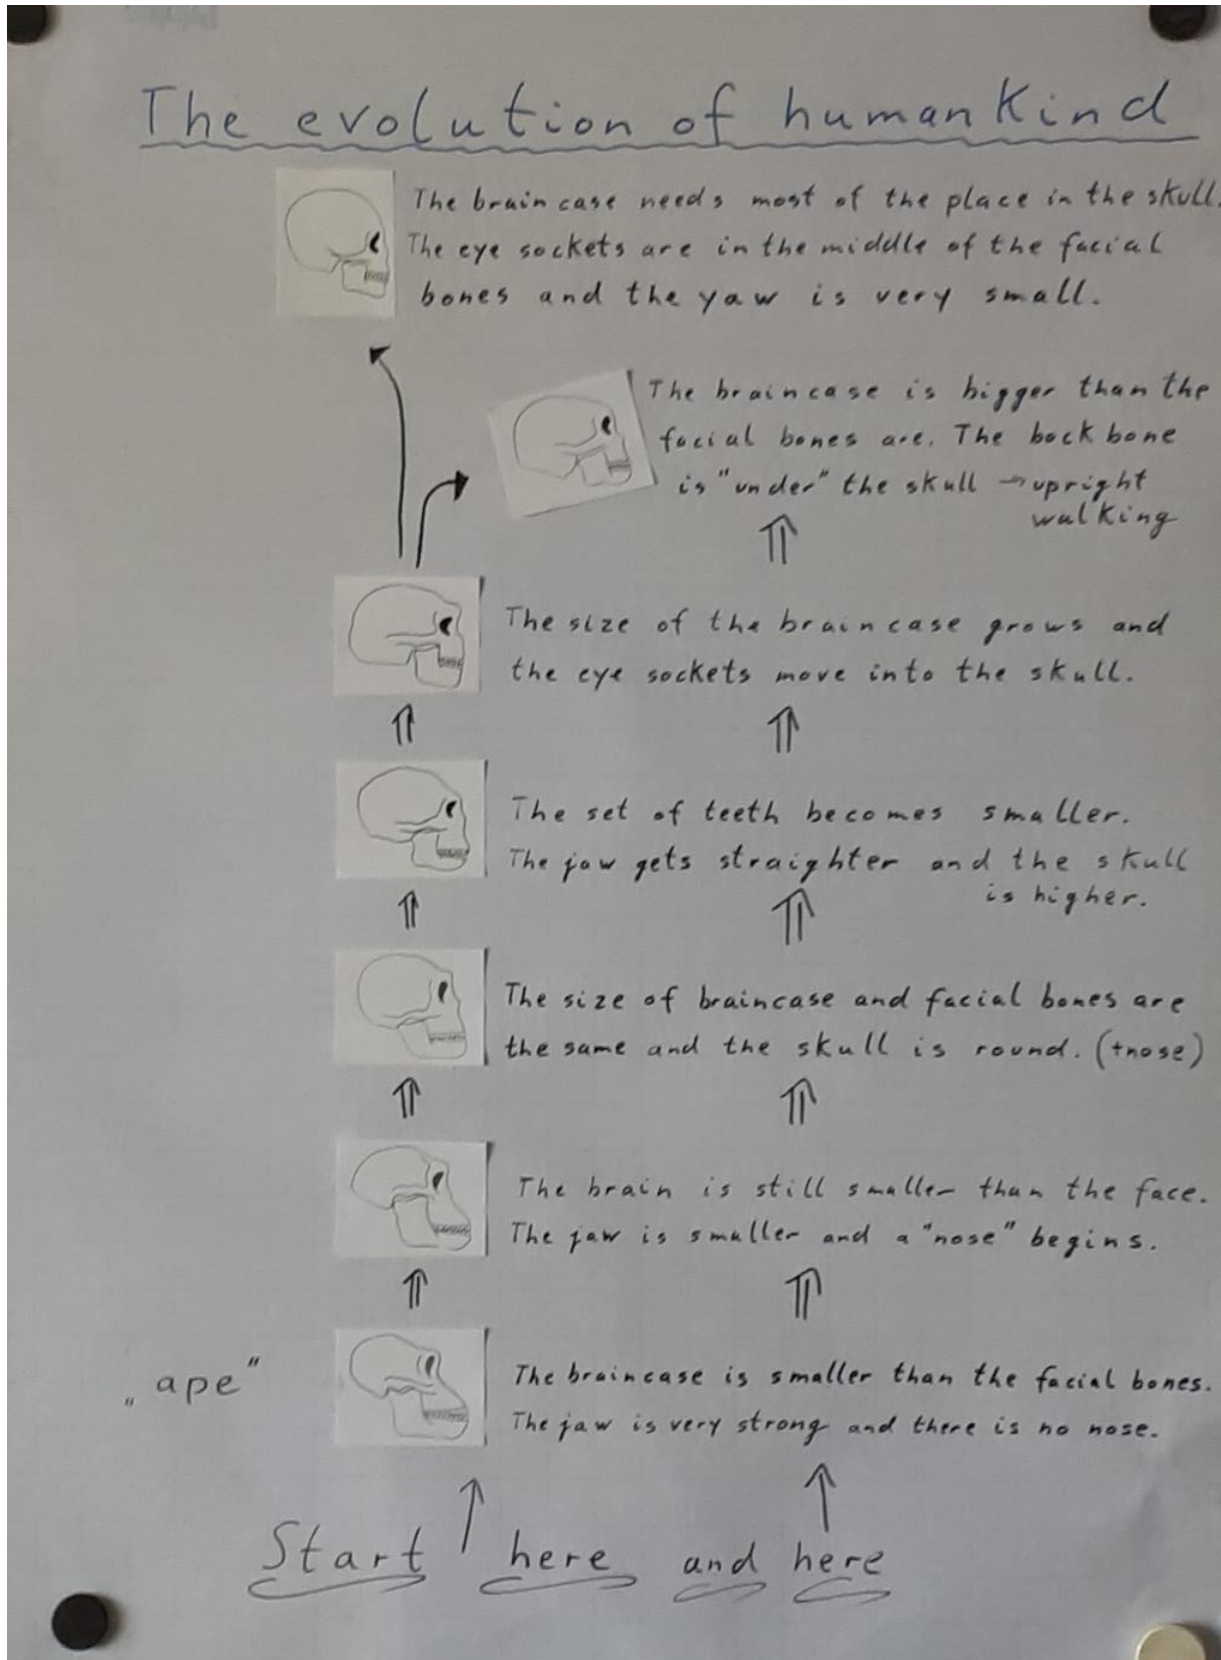 The evolution of humankind
The braincase needs most of the place in the skull.
The eye sockets are in the middle of the facial
bones and the yaw is very small.
The braincase is bigger than the
facial bones are. The backbone
is "under" the skull → upright
walking
The size of the braincase grows and
the eye sockets move into the skull.
The set of teeth becomes smaller.
The jaw gets straighter and the skull
is higher.
The size of braincase and facial bones are
the same and the skull is round. (+nose)
The brain is still smaller than the face.
The jaw is smaller and a "nose" begins.
„ape"
The braincase is smaller than the facial bones.
The jaw is very strong and there is no nose.
Start here and here